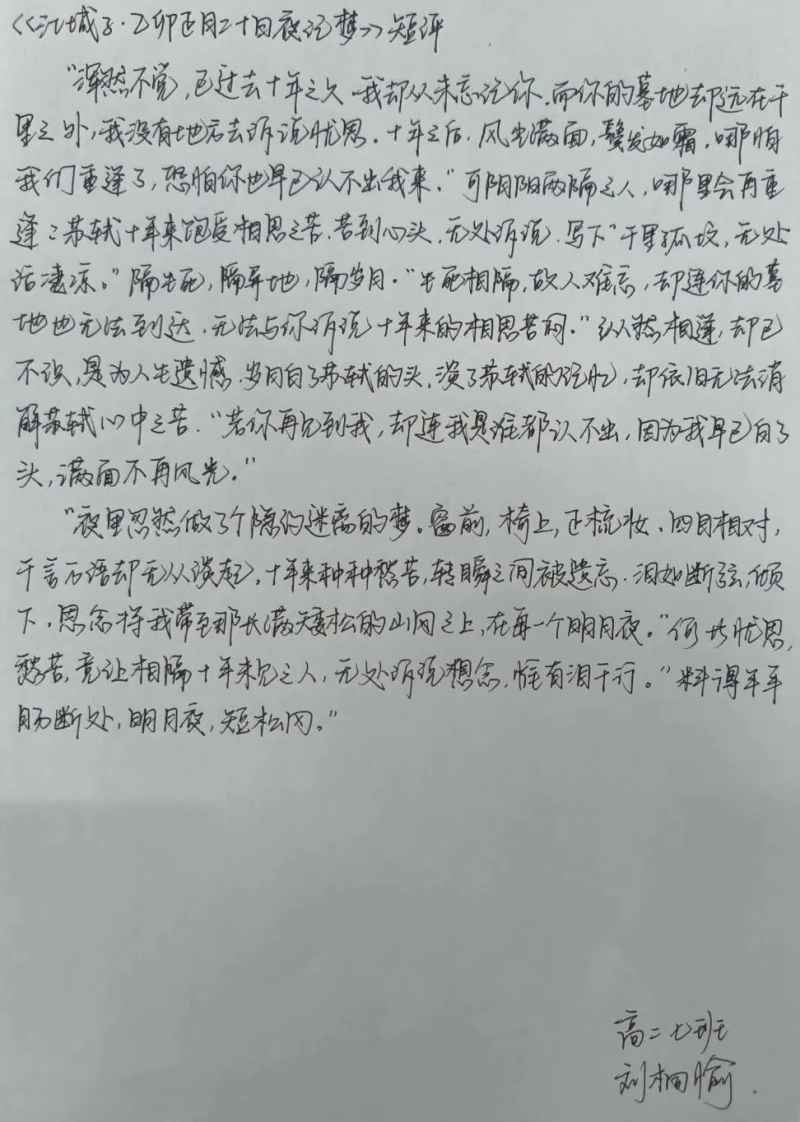 《江城子·乙卯正月二十日夜记梦》短评
"浑然不觉,已过去十年之久,我却从未忘记你.而你的墓地却远在千
里之外,我没有地方去诉说忧思.十年之后,风尘满面,鬓发如霜,哪怕
我们重逢了,恐怕你也早已认不出我来."可阴阳两隔之人,哪里会再重
逢?苏轼十年来饱受相思之苦,苦到心头,无处诉说.写下"千里孤坟,无处
话凄凉。"隔生死,隔异地,隔岁月."生死相隔,故人难忘,却连你的墓
地也无法到达.无法与你诉说十年来的相思苦闷."纵然相逢,却已
不识,是为人生遗憾.岁月白了苏轼的头,淡了苏轼的记忆,却依旧无法消
解苏轼心中之苦."若你再见到我,却连我是谁都认不出,因为我早已白了
头,满面不再风光."
"夜里忽然做了个隐约迷离的梦。窗前,椅上,正梳妆.四目相对,
千言万语却无从谈起,十年来种种愁苦,转瞬之间被遗忘.泪如断弦,倾
下.思念将我带至那长满矮松的山冈之上,在每一个明月夜."何其忧思,
愁苦,竟让相隔十年未见之人,无处诉说想念,惟有泪千行。"料得年年
肠断处,明月夜,短松冈。"
高二七班
刘桐愉.